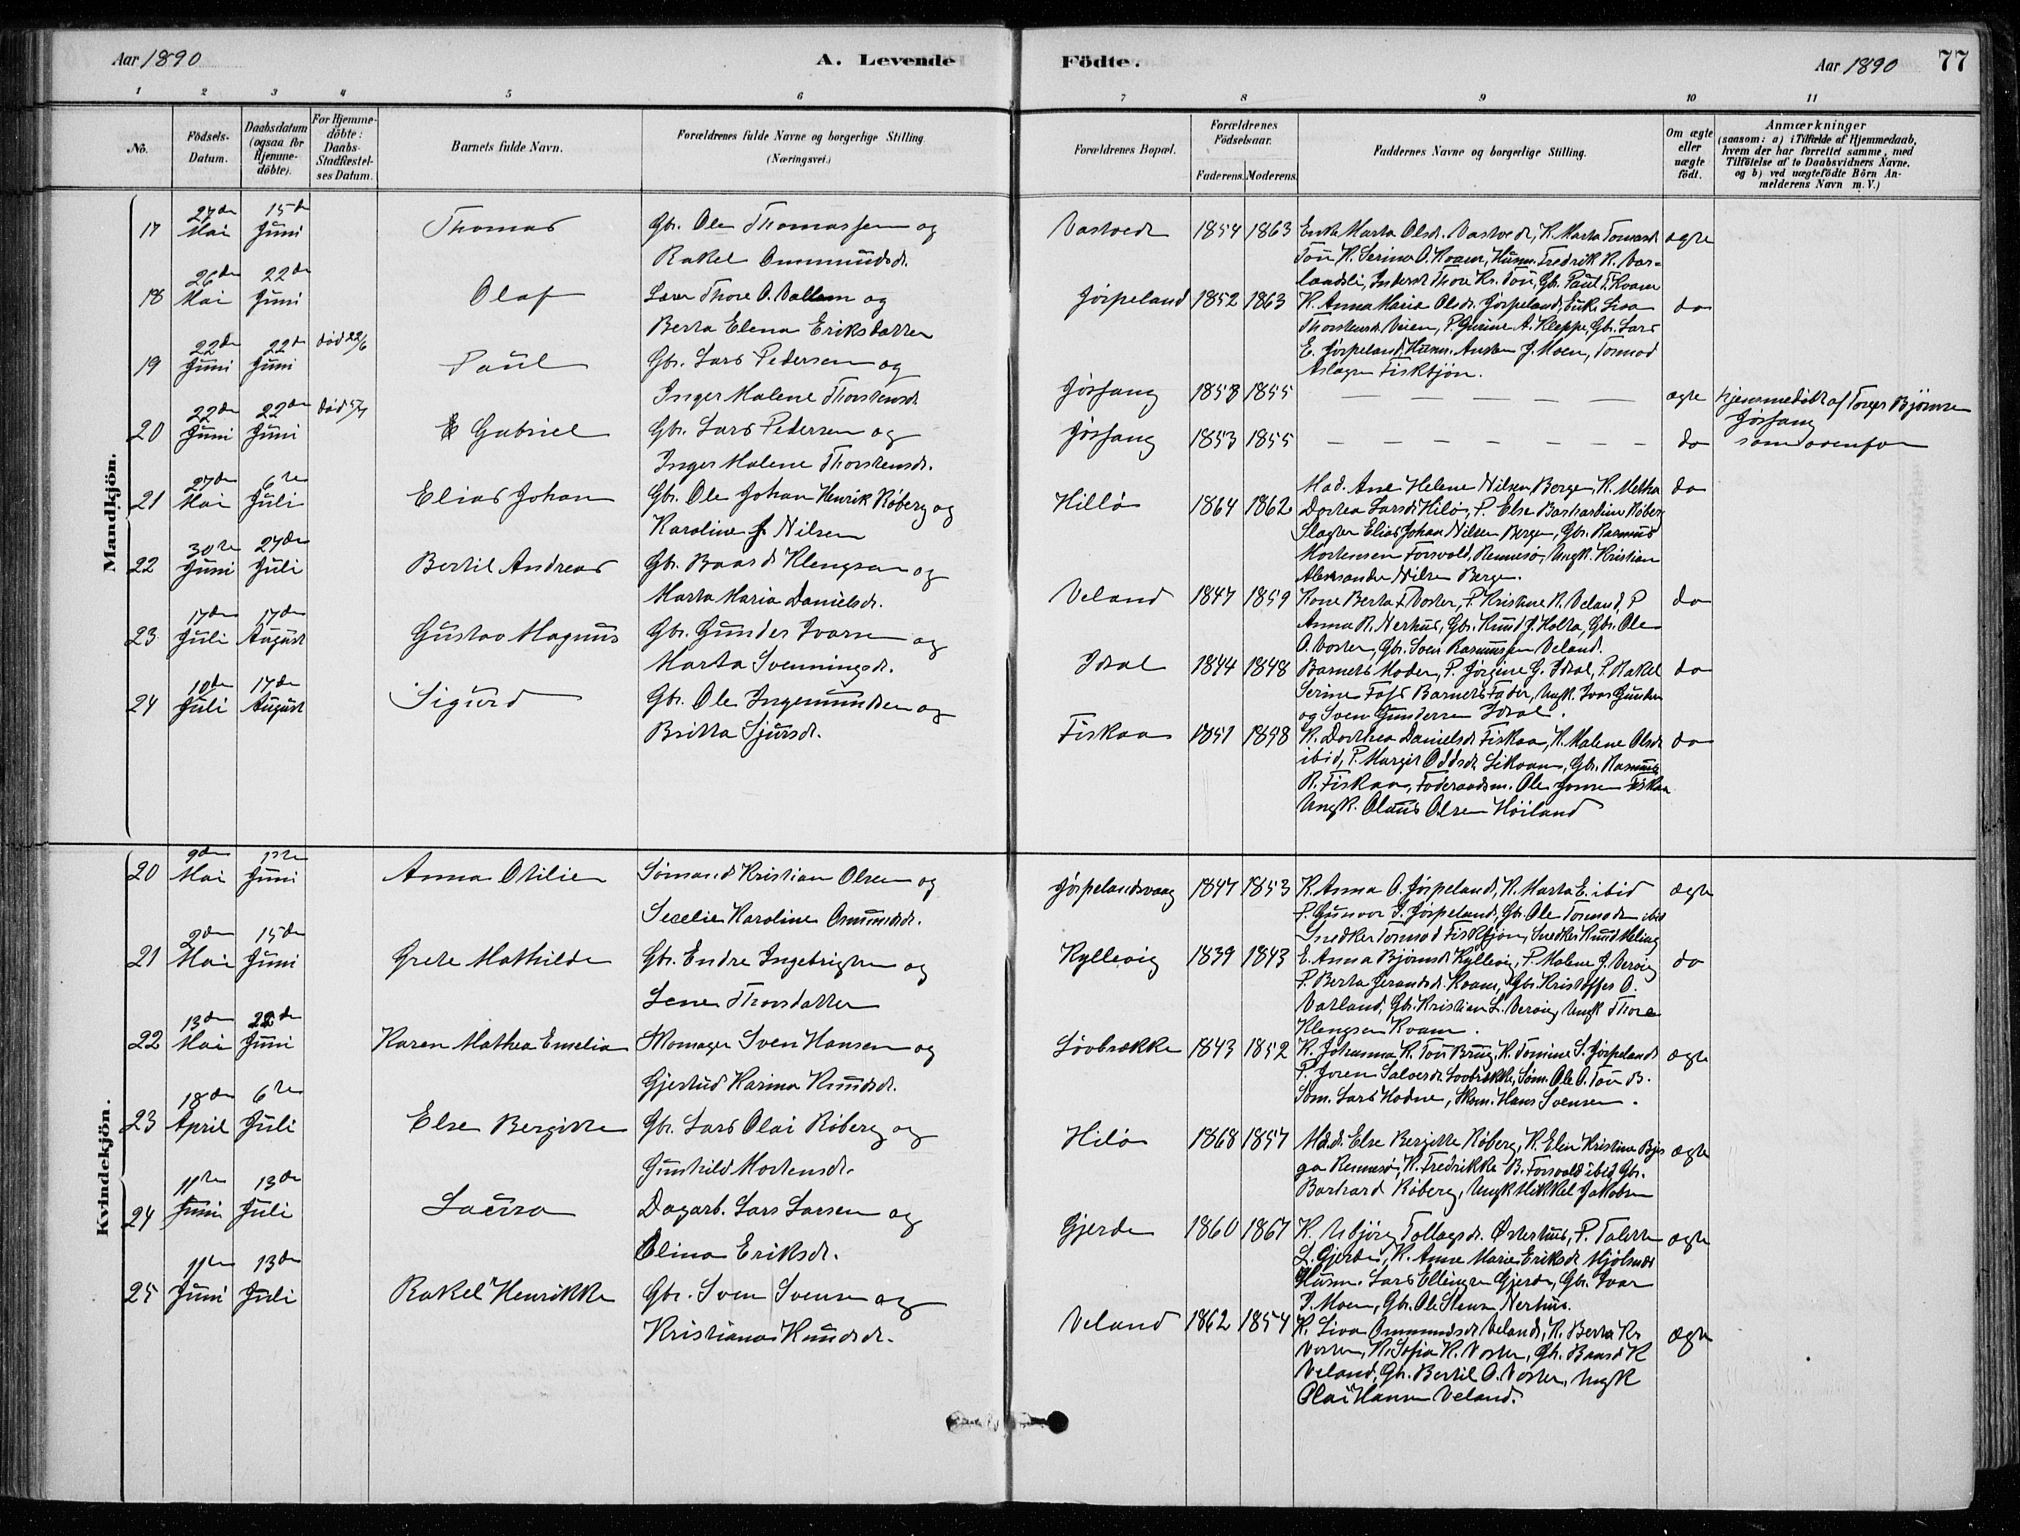 Aar 1890
A. Levende
Födte.
Aar 1890
77
1 2 3 4 5 6 7 8 9 10 11
No.
Födsels-Datum.
Daabsdatum (ogsaa for Hjemme-döbte).
For Hjemme-döbte: Daabs-Stadfæstel-ses Datum.
Barnets fulde Navn.
Forældrenes fulde Navne og borgerlige Stilling (Næringsvei.)
Forældrenes Bopæl.
Forældrenes Födselsaar.
Faderens. Moderens.
Faddernes Navne og borgerlige Stilling.
Om ægte eller uægte födt.
Anmærkninger
(saasom: a) i Tilfælde af Hjemmedaab,
hvem der har forrettet samme, med
Tilföielse af to Daabsvidners Navne,
og b) ved uægtefödte Börn An-
melderens Navn m. V.)
Mandkjön.
17 27de Mai 15de Juni Thomas Gbr. Ole Thomassen og
Rakel Ommundsdr.
Vastvedt 1854 1863 Enke Marta Olsdr. Vastvedt, K. Marta Tomasdr
Tou K. Serina O. Kvam, Husm. Fredrik K. Var-
landsli, Inderst Thore Kr. Tou, Gbr. Paul T. Kvam
ægte
18 26de Mai 22de Juni Olaf Lærer Thore O. Vallem og
Berta Elena Eriksdatter
Jørpeland 1852 1863 K. Anna Maria Olsdr. Jørpeland, Enke Siva
Thorstensdr. Veien, P. Gurine A. Kleppe, Gbr. Lars
E. Jørpeland, Husm. Austen J. Moen, Tormod
Aslagsen Fisktjøn.
do
19 22de Juni 22de Juni død 22/6 Paul Gbr. Lars Pedersen og
Inger Malene Thorstensdr.
Jøsfang 1853 1855 — — — — — — ægte hjemmedøbt af Torger Bjørnsen
Jøsfang
20 22de Juni 22de Juni død 5/7 Gabriel Gbr. Lars Pedersen og
Inger Malene Thorstensdr.
Jøsfang 1853 1855 — — — — — — — do som ovenfor
21 27de Mai 6te Juli Elias Johan Gbr. Ole Johan Henrik Røberg og
Karoline J. Nilsen
Hilløi 1864 1862 Mad. Ane Helene Nilsen Bergen, K. Metha
Dortea Larsd. Hilø, P. Else Barharline Røberg
Slagter Elias Johan Nilsen Bergen, Gbr. Rasmus
Mortensen Forsvold, Rennesø, Ungk. Kristian
Aleksander Nilsen Bergen.
do
22 30te Juni 27de Juli Bertil Andreas Gbr. Baard Klengsen og
Marta Maria Danielsdr.
Veland 1847 1859 Kone Berta T. Voster, P. Kristine K. Veland, P
Anna R. Nerhus, Gbr. Knud J. Holta, Gbr. Ole
O. Voster, Gbr. Sven Rasmussen Veland.
do
23 17de Juli 17de August Gustav Magnus Gbr. Gunder Ivarsen og
Marta Svenningsdr.
Idsal 1844 1848 Barnets Moder, P. Jørgine G. Idsal, P. Rakel
Serine Fosf Barnets Fader, Ungk. Ivar Gunders.
og Sven Gundersen Idsal.
do
24 10de Juli 17de August Sigurd Gbr. Ole Ingemundsen og
Britta Sjursdr.
Fiskaa 1851 1848 K. Dorthea Danielsdr. Fiskaa, K. Malene Olsdr
ibid, P. Margit Oddsdr. Lekvam, Gbr. Rasmus
R. Fiskaa, Føderaadsm. Ole Jonsen Fiskaa
Ungk. Olaus Olsen Høiland
do
Kvindekjön.
20 9de Mai 1ste Juni Anna Otilie Sømand Kristian Olsen og
Secelie Karoline Osmundsdr.
Jørpelandsvaag 1847 1853 K. Anna O. Jørpeland, K. Marta E. ibid
P. Gunvor J. Jørpeland, Gbr. Ole Tormodsen ibid
Snedker Tormod Fisktjøn, Snedker Knud Meling
ægte
21 2den Mai 15de Juni Grete Mathilde Gbr. Endre Ingebrigtsen og
Lene Thorsdatter
Kyllevig 1839 1843 E. Anna Bjørnsdr Kyllevig, P. Malene J. Vervig
P. Berta Jerandsdr. Kvam, Gbr. Kristoffer O.
Varland, Gbr. Kristian L. Vervig Ungk Thore
Klengsen Kvam.
do
22 13de Mai 22de Juni Karen Mathea Emelia Skomager Sven Hansen og
Gjertrud Karina Knudsdr.
Løvbrække 1843 1852 K. Johanna K. Tou Brug, K. Tomine S. Jørpeland
P. Joren Salvesdr. Løvbrække, Søm. Ole O. Tou B.
Søm. Lars Hodne, Skom. Hans Svensen.
ægte
23 18de April 6te Juli Else Bergitte Gbr. Lars Olai Røberg og
Gunhild Mortensdr.
Hilø 1868 1857 Mad. Else Bergitte Røberg, K. Elen Kristine Byr
ga Rennesø, K. Fredrikke B. Forsvold ibid, Gbr.
Barhard Røberg, Ungk Mikkel Jakobsen
ægte
24 11te Juni 13de Juli Laura Dagarb. Lars Larsen og
Elina Eriksdr.
Gjerde 1860 1867 K. Asbjørg Tollagsdr. Østerhus, P. Talette
L. Gjerde, K. Anne Marie Eriksdr Mjølsnes
Husm. Lars Ellingsen Gjerde, Gbr. Ivar
J. Moen, Gbr. Ole Stensen Nerhus.
ægte
25 11te Juni 13de Juli Rakel Henrikke Gbr. Sven Svensen og
Kristiana Knudsdr.
Veland 1862 1854 K. Siva Ommundsdr Veland, K. Berta Kr.
Voster, K. Sofia K. Voster, Gbr. Baard K
Veland, Gbr. Bertil O. Voster, Ungk
Olai Hansen Veland.
ægte